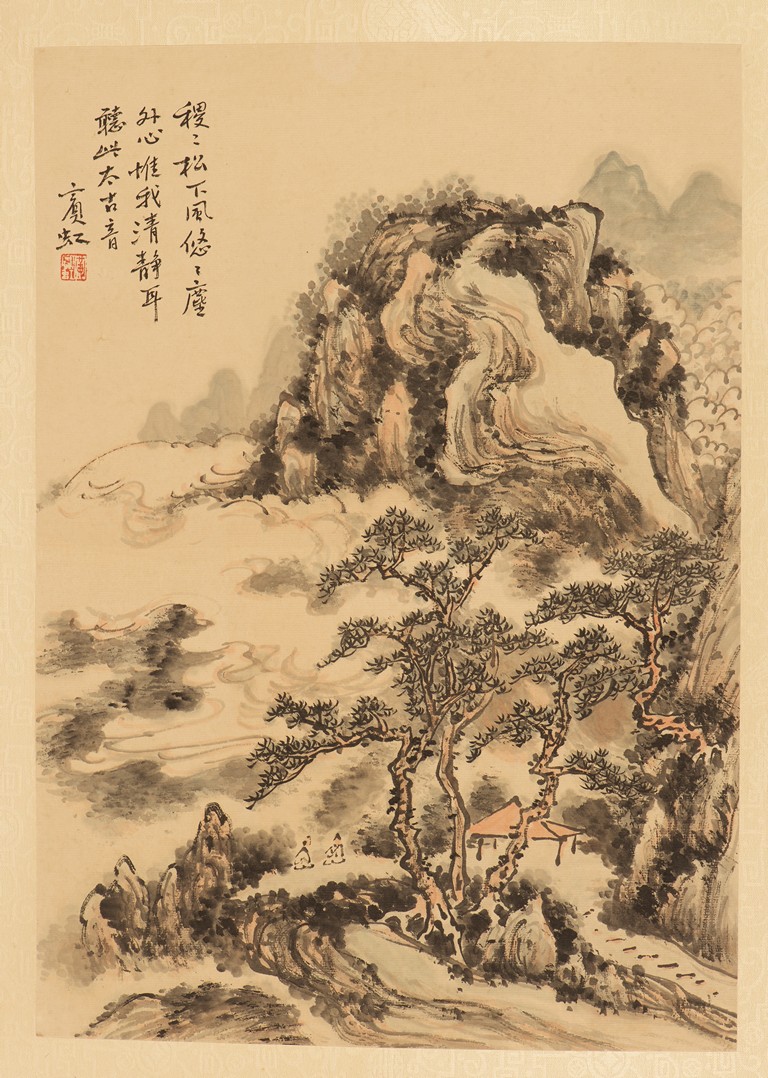 稷〻松下風悠〻塵
外心惟我清靜耳
聽此太古音
賓虹